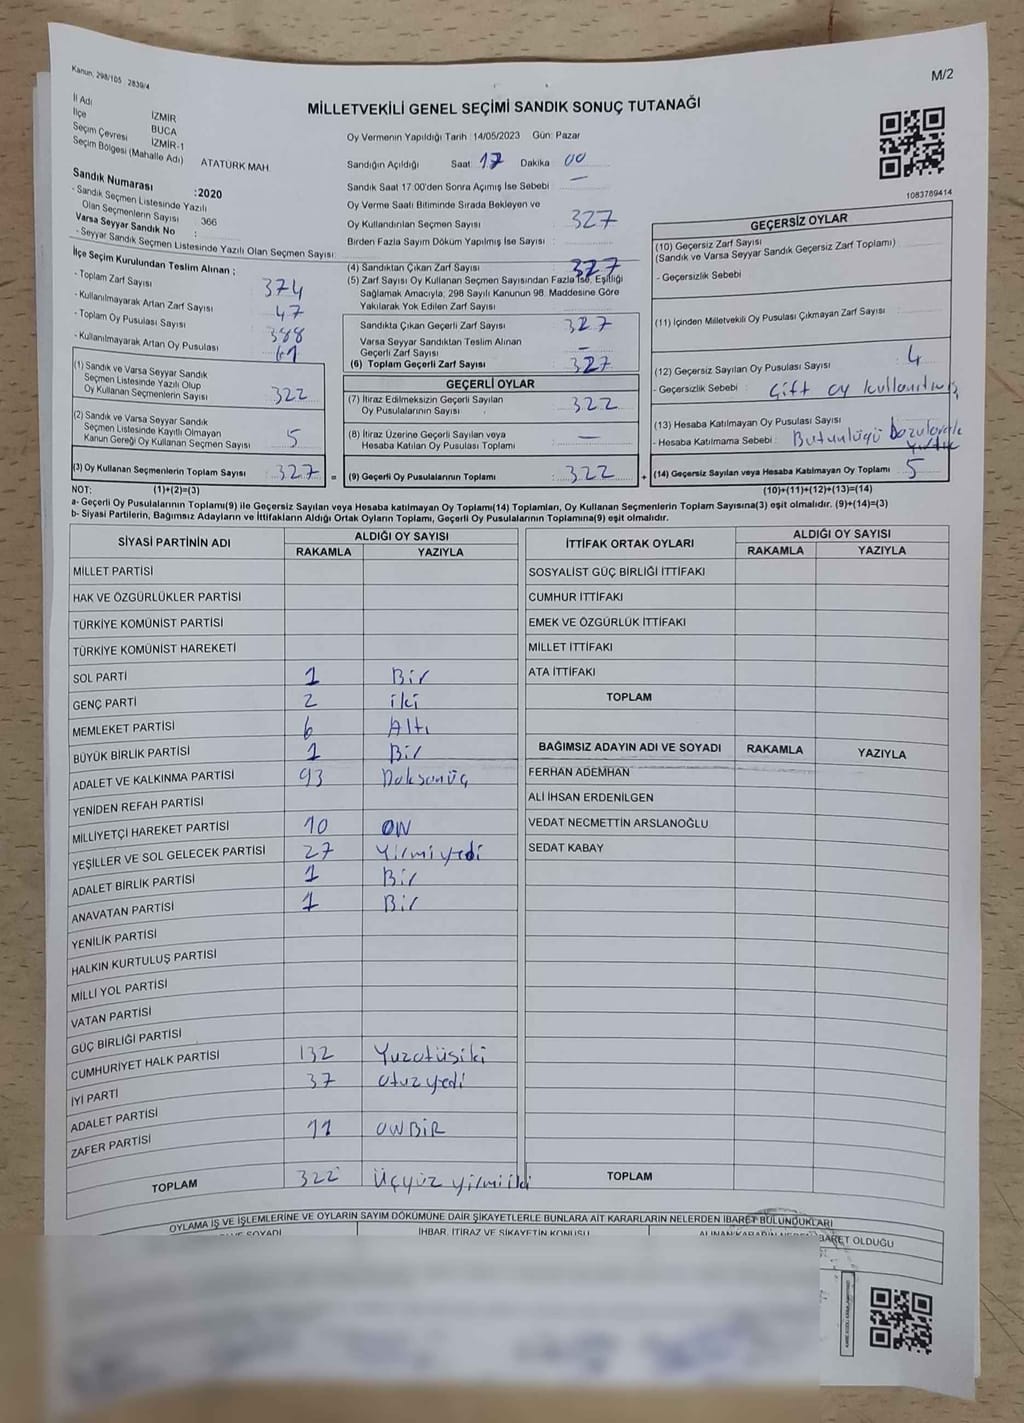 Kanun; 298/105 2839/4
M/2
MİLLETVEKİLİ GENEL SEÇİMİ SANDIK SONUÇ TUTANAĞI
İl Adı İZMİR
İlçe BUCA
Seçim Çevresi İZMİR-1
Seçim Bölgesi (Mahalle Adı) ATATÜRK MAH.
Sandık Numarası :2020
- Sandık Seçmen Listesinde Yazılı
Olan Seçmenlerin Sayısı 366
Varsa Seyyar Sandık No :
- Seyyar Sandık Seçmen Listesinde Yazılı Olan Seçmen Sayısı:
İlçe Seçim Kurulundan Teslim Alınan ;
- Toplam Zarf Sayısı 374
- Kullanılmayarak Artan Zarf Sayısı 47
- Toplam Oy Pusulası Sayısı 388
- Kullanılmayarak Artan Oy Pusulası 61
(1) Sandık ve Varsa Seyyar Sandık
Seçmen Listesinde Yazılı Olup
Oy Kullanan Seçmenlerin Sayısı 322
(2) Sandık ve Varsa Seyyar Sandık
Seçmen Listesinde Kayıtlı Olmayan
Kanun Gereği Oy Kullanan Seçmen Sayısı 5
(3) Oy Kullanan Seçmenlerin Toplam Sayısı : 327 =
Oy Vermenin Yapıldığı Tarih :14/05/2023 Gün: Pazar
Sandığın Açıldığı Saat 17 Dakika 00
Sandık Saat 17.00'den Sonra Açımış İse Sebebi : —
Oy Verme Saati Bitiminde Sırada Bekleyen ve
Oy Kullandırılan Seçmen Sayısı : 327
Birden Fazla Sayım Döküm Yapılmış İse Sayısı :
(4) Sandıktan Çıkan Zarf Sayısı 327
(5) Zarf Sayısı Oy Kullanan Seçmen Sayısından Fazla İse, Eşitliği
Sağlamak Amacıyla; 298 Sayılı Kanunun 98. Maddesine Göre
Yakılarak Yok Edilen Zarf Sayısı
Sandıkta Çıkan Geçerli Zarf Sayısı 327
Varsa Seyyar Sandıktan Teslim Alınan
Geçerli Zarf Sayısı —
(6) Toplam Geçerli Zarf Sayısı 327
GEÇERLİ OYLAR
(7) İtiraz Edilmeksizin Geçerli Sayılan
Oy Pusulalarının Sayısı : 322
(8) İtiraz Üzerine Geçerli Sayılan veya
Hesaba Katılan Oy Pusulası Toplamı : —
(9) Geçerli Oy Pusulalarının Toplamı : 322 +
1083769414
GEÇERSİZ OYLAR
(10) Geçersiz Zarf Sayısı
(Sandık ve Varsa Seyyar Sandık Geçersiz Zarf Toplamı) :
- Geçersizlik Sebebi :
(11) İçinden Milletvekili Oy Pusulası Çıkmayan Zarf Sayısı :
(12) Geçersiz Sayılan Oy Pusulası Sayısı : 4
- Geçersizlik Sebebi : Çift oy kullanılmış
(13) Hesaba Katılmayan Oy Pusulası Sayısı :
- Hesaba Katılmama Sebebi : Bütünlüğü bozularak
(14) Geçersiz Sayılan veya Hesaba Katılmayan Oy Toplamı 5
NOT: (1)+(2)=(3) (10)+(11)+(12)+(13)=(14)
a- Geçerli Oy Pusulalarının Toplamı(9) ile Geçersiz Sayılan veya Hesaba katılmayan Oy Toplamı(14) Toplamları, Oy Kullanan Seçmenlerin Toplam Sayısına(3) eşit olmalıdır. (9)+(14)=(3)
b- Siyasi Partilerin, Bağımsız Adayların ve İttifakların Aldığı Ortak Oyların Toplamı, Geçerli Oy Pusulalarının Toplamına(9) eşit olmalıdır.
SİYASİ PARTİNİN ADI ALDIĞI OY SAYISI
RAKAMLA YAZIYLA
MİLLET PARTİSİ
HAK VE ÖZGÜRLÜKLER PARTİSİ
TÜRKİYE KOMÜNİST PARTİSİ
TÜRKİYE KOMÜNİST HAREKETİ
SOL PARTİ 1 Bir
GENÇ PARTİ 2 iki
MEMLEKET PARTİSİ 6 Altı
BÜYÜK BİRLİK PARTİSİ 1 Bir
ADALET VE KALKINMA PARTİSİ 93 Doksanüç
YENİDEN REFAH PARTİSİ
MİLLİYETÇİ HAREKET PARTİSİ 10 ON
YEŞİLLER VE SOL GELECEK PARTİSİ 27 Yirmiyedi
ADALET BİRLİK PARTİSİ 1 Bir
ANAVATAN PARTİSİ 1 Bir
YENİLİK PARTİSİ
HALKIN KURTULUŞ PARTİSİ
MİLLİ YOL PARTİSİ
VATAN PARTİSİ
GÜÇ BİRLİĞİ PARTİSİ
CUMHURİYET HALK PARTİSİ 132 Yuzotüsiki
İYİ PARTİ 37 otuzyedi
ADALET PARTİSİ
ZAFER PARTİSİ 11 ONBİR
TOPLAM 322 Üçyüz yirmiiki
İTTİFAK ORTAK OYLARI ALDIĞI OY SAYISI
RAKAMLA YAZIYLA
SOSYALİST GÜÇ BİRLİĞİ İTTİFAKI
CUMHUR İTTİFAKI
EMEK VE ÖZGÜRLÜK İTTİFAKI
MİLLET İTTİFAKI
ATA İTTİFAKI
TOPLAM
BAĞIMSIZ ADAYIN ADI VE SOYADI RAKAMLA YAZIYLA
FERHAN ADEMHAN
ALİ İHSAN ERDENİLGEN
VEDAT NECMETTİN ARSLANOĞLU
SEDAT KABAY
TOPLAM
OYLAMA İŞ VE İŞLEMLERİNE VE OYLARIN SAYIM DÖKÜMÜNE DAİR ŞİKAYETLERLE BUNLARA AİT KARARLARIN NELERDEN İBARET BULUNDUKLARI
SOYADI İHBAR, İTİRAZ VE ŞİKAYETİN KONUSU ALINAN KARARIN NEDEN İBARET OLDUĞU